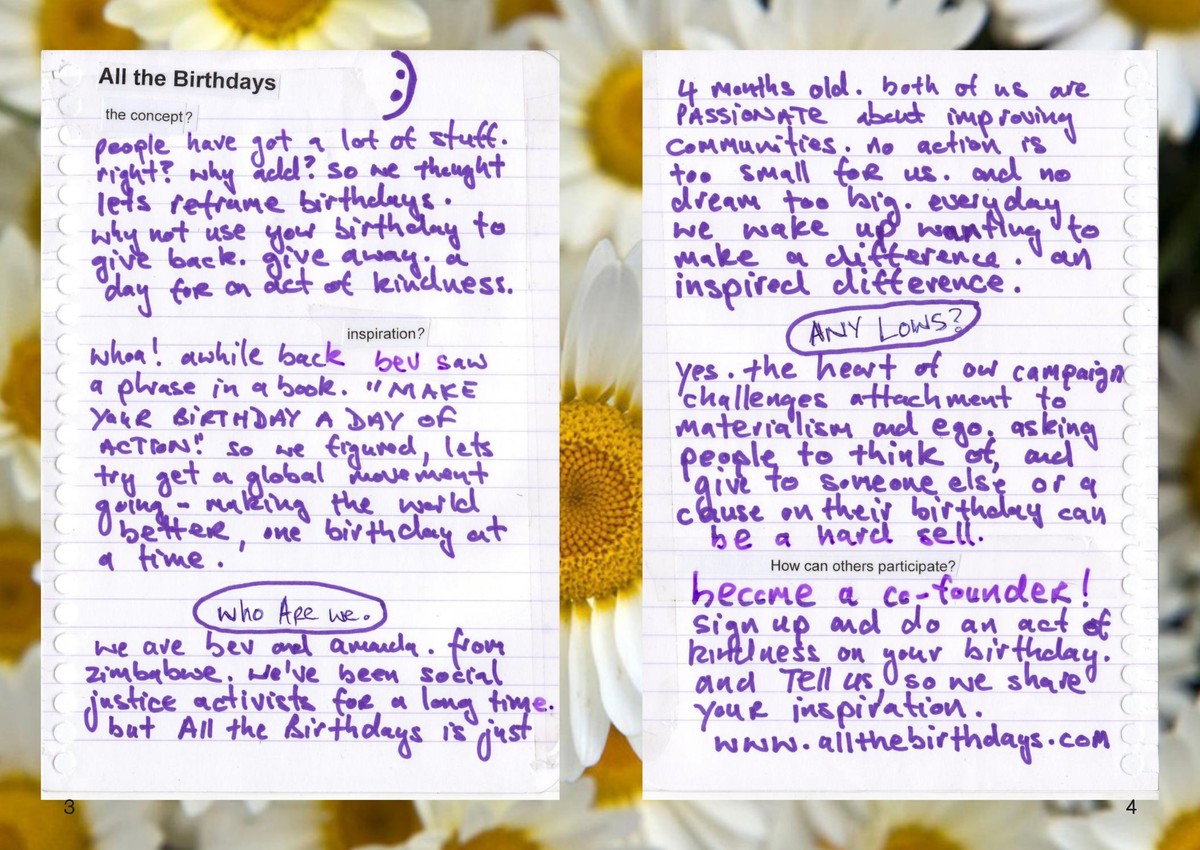 All the Birthdays
:)
the concept?
people have got a lot of stuff.
right? why add? so we thought
lets reframe birthdays.
why not use your birthday to
give back. give away. a
day for an act of kindness.
inspiration?
whoa! awhile back bev saw
a phrase in a book. "MAKE
YOUR BIRTHDAY A DAY OF
ACTION." so we figured, lets
try get a global movement
going - making the world
better, one birthday at
a time.
who Are we.
we are bev and amanda. from
zimbabwe. we've been social
justice activists for a long time.
but All the Birthdays is just
3
4 months old. both of us are
PASSIONATE about improving
communities. no action is
too small for us. and no
dream too big. everyday
we wake up wanting to
make a difference. an
inspired difference.
ANY LOWS?
yes. the heart of our campaign
challenges attachment to
materialism and ego. asking
people to think of, and
give to someone else or a
cause on their birthday can
be a hard sell.
How can others participate?
become a co-founder!
sign up and do an act of
kindness on your birthday.
and Tell us, so we share
your inspiration.
www.allthebirthdays.com
4